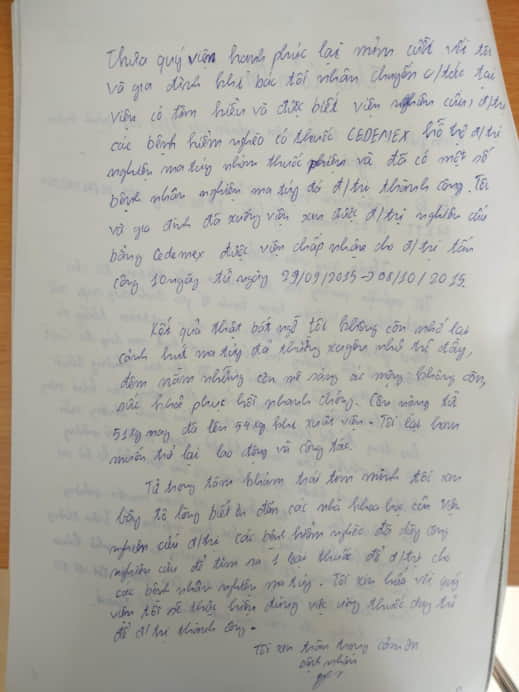 Thưa quý viện hạnh phúc lại mỉm cười với tôi
và gia đình khi bác tôi nhân chuyến c/tác tại
viện có tìm hiểu và được biết viện nghiên cứu, đ/trị
các bệnh hiểm nghèo có thuốc CEDEMEX hỗ trợ đ/trị
nghiện ma túy nhóm thuốc phiện và đã có một số
bệnh nhân nghiện ma túy đã đ/trị thành công. Tôi
và gia đình đã xuống viện xin được đ/trị nghiên cứu
bằng Cedemex được viện chấp nhận cho đ/trị tấn
công 10 ngày từ ngày 29/09/2015 -> 08/10/2015.
Kết quả thật bất ngờ tôi không còn nhớ lại
cảnh hút ma túy đã thường xuyên như trỗi dậy,
đêm nằm những cơn mê sảng ác mộng không còn,
sức khoẻ phục hồi nhanh chóng. Cân nặng từ
51kg nay đã lên 54kg khi xuất viện. Tôi lại ham
muốn trở lại lao động và công tác.
Từ trong tâm khảm trái tim mình tôi xin
bày tỏ lòng biết ơn đến các nhà khoa học của viện
nghiên cứu đ/trị các bệnh hiểm nghèo đã dày công
nghiên cứu để tìm ra 1 loại thuốc để đ/trị cho
các bệnh nhân nghiện ma túy. Tôi xin hứa với quý
viện tôi sẽ thực hiện đúng việc uống thuốc duy trì
để đ/trị thành công.
Tôi xin trân trọng cảm ơn
bệnh nhân